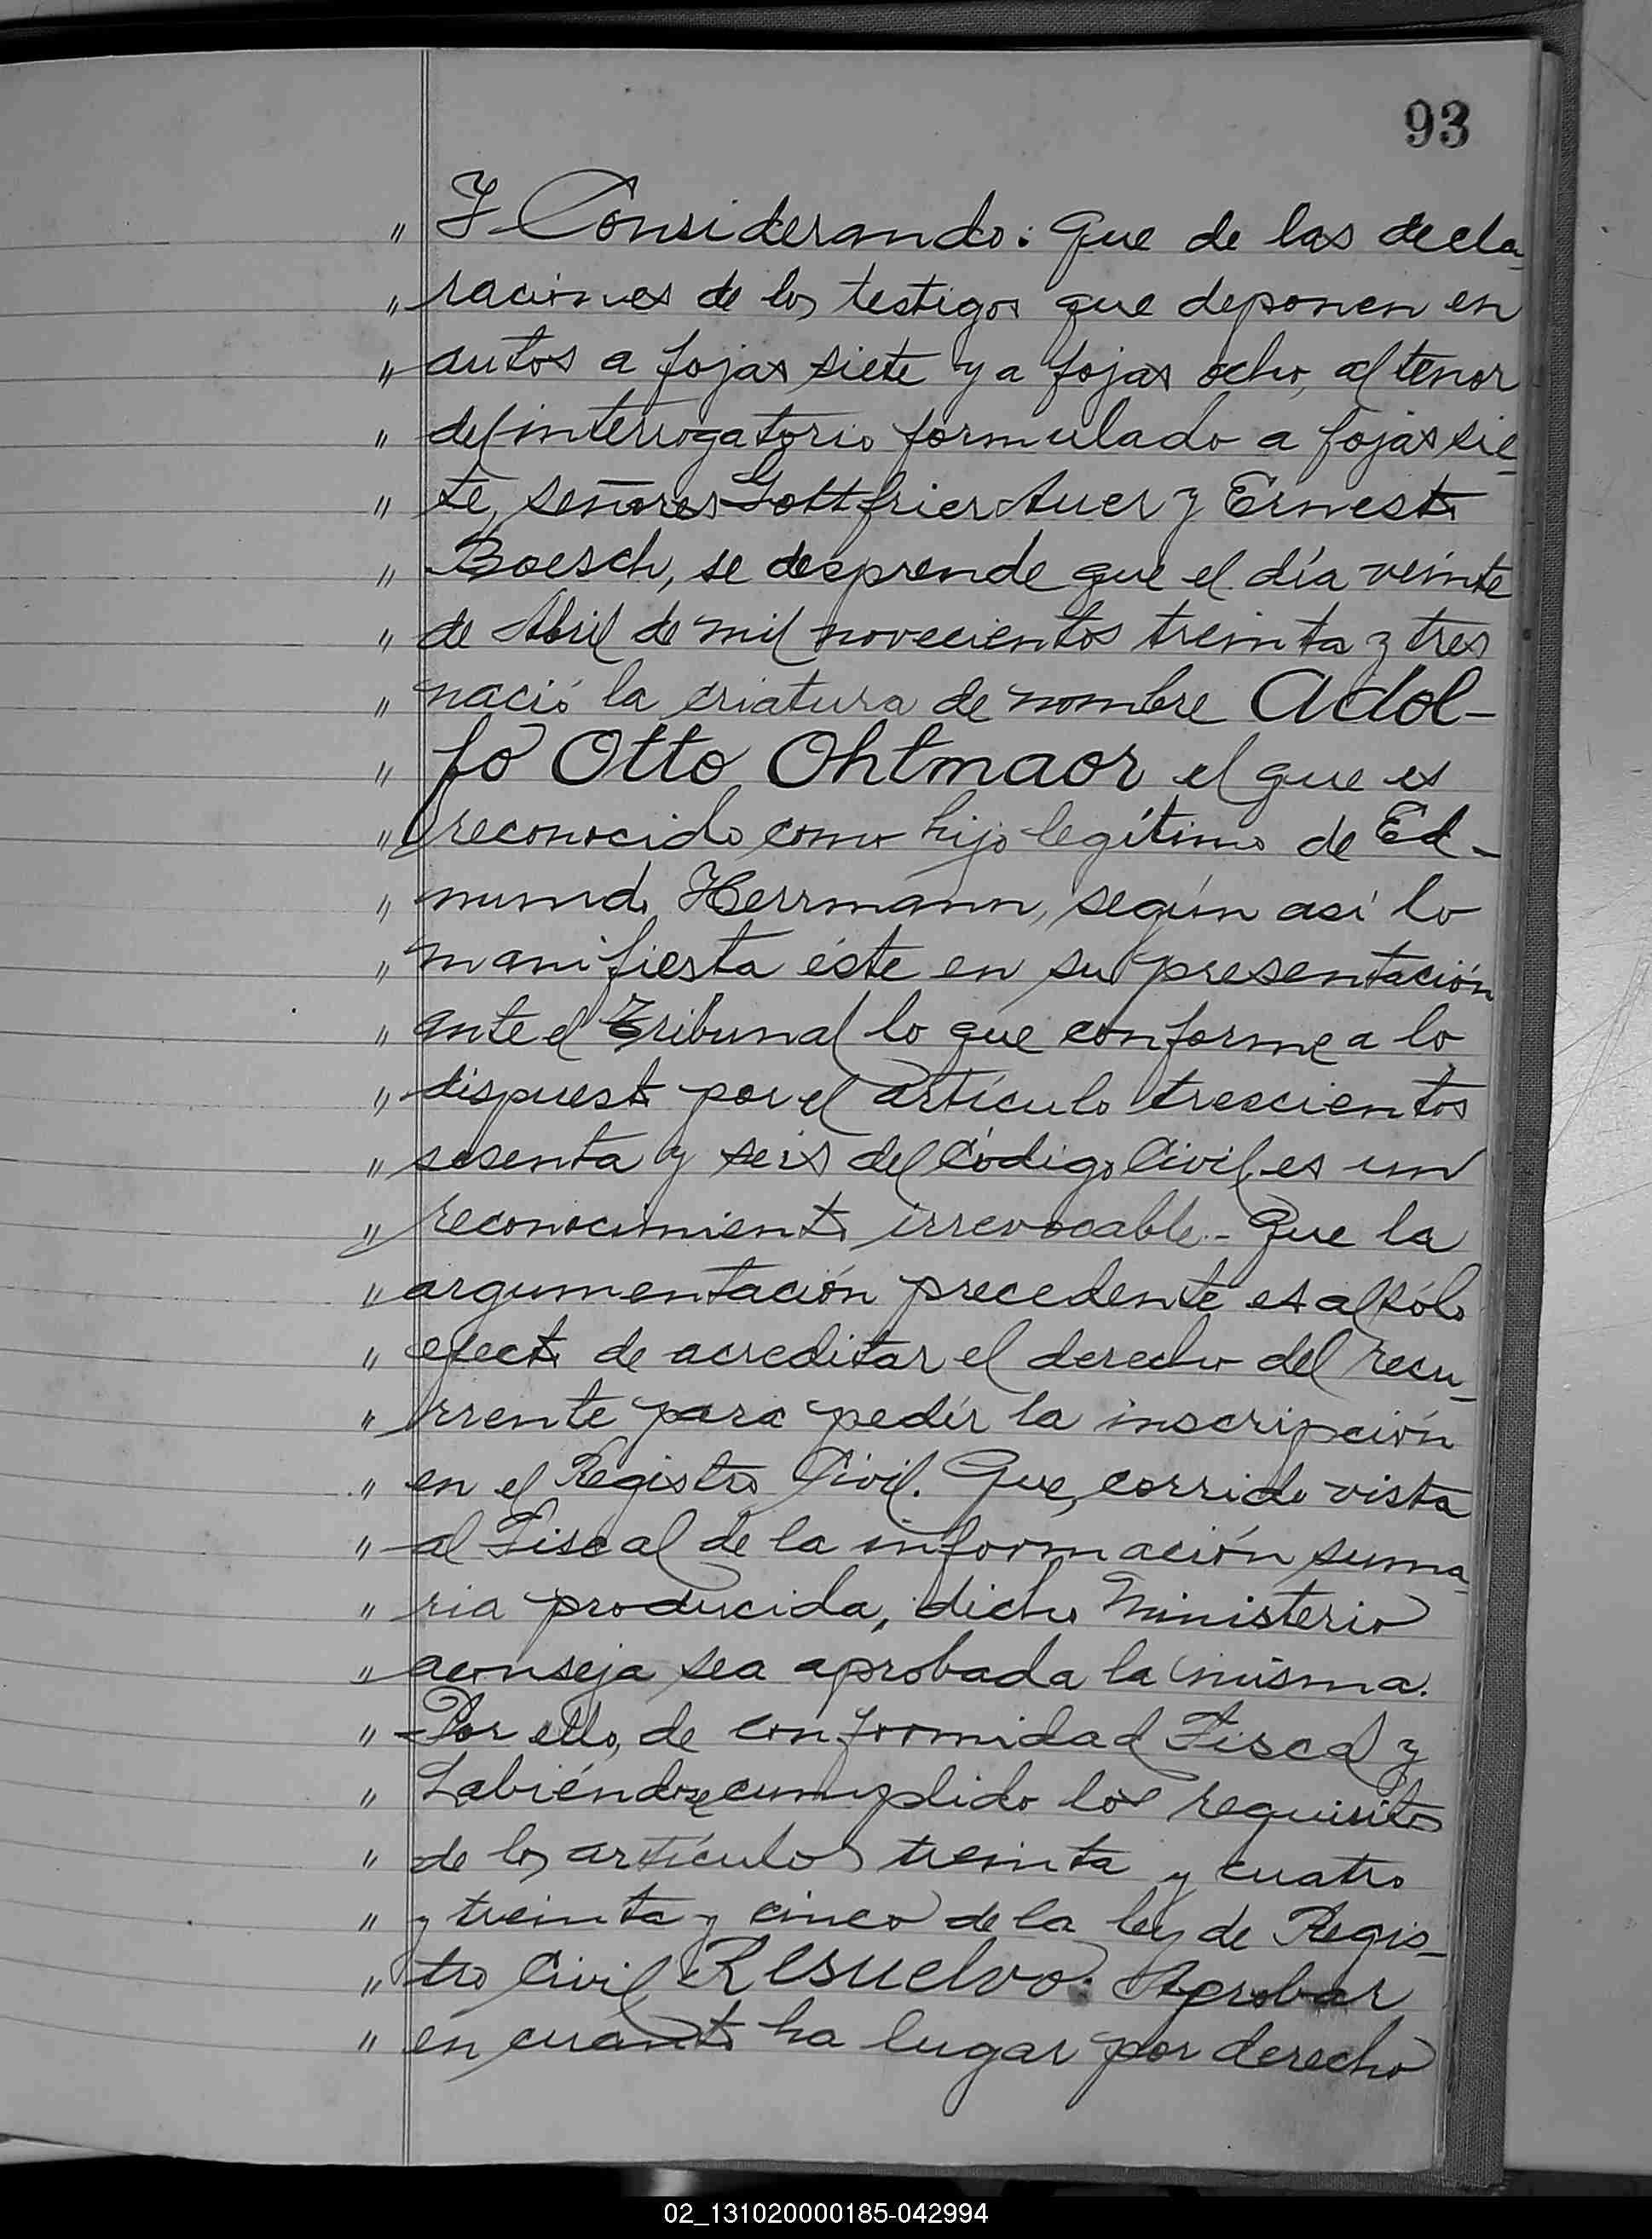 93
" Y Considerando: Que de las decla-
" raciones de los testigos que deponen en
" autos a fojas siete y a fojas ocho, al tenor
" del interrogatorio formulado a fojas sie-
" te, señores Gottfrier Auer y Ernesto
" Boesch, se desprende que el día veinte
" de Abril de mil novecientos treinta y tres
" nació la criatura de nombre Adol-
" fo Otto Ohtmaor el que es
" reconocido como hijo legítimo de Ed-
" mundo Herrmann, según así lo
" manifiesta éste en su presentación
" ante el Tribunal lo que conforme a lo
" dispuesto por el artículo trescientos
" sesenta y seis del Código Civil es un
" reconocimiento irrevocable.- Que la
" argumentación precedente es al sólo
" efecto de acreditar el derecho del recu-
" rrente para pedir la inscripción
" en el Registro Civil. Que, corrido vista
" al Fiscal de la información suma-
" ria producida, dicho Ministerio
" aconseja sea aprobada la misma.
" Por ello, de conformidad Fiscal y
" habiéndose cumplido los requisitos
" de los artículos treinta y cuatro
" y treinta y cinco de la ley de Regis-
" tro Civil Resuelvo: Aprobar
" en cuanto ha lugar por derecho
02_131020000185-042994